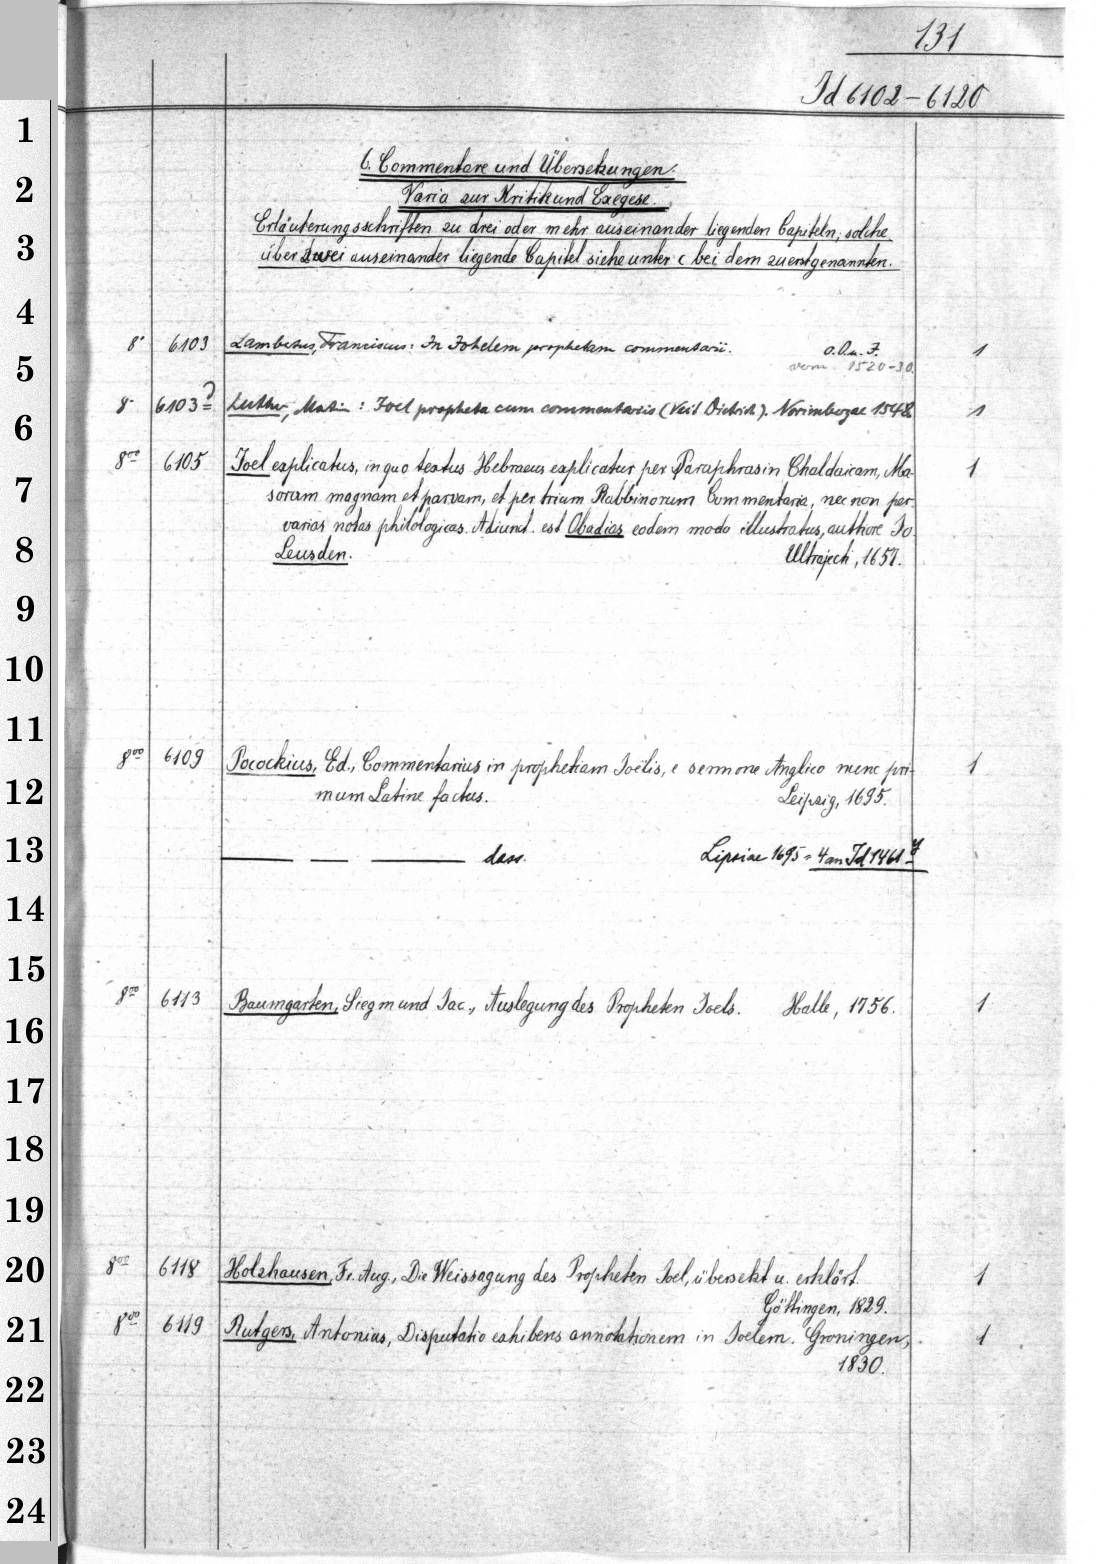 131
Id 6102-6120
b. Commentare und Übersetzungen.
Varia zur Kritik und Exegese.
Erläuterungsschriften zu drei oder mehr auseinander liegenden Capiteln; solche
über zwei auseinander liegende Capitel siehe unter c bei dem zuerstgenannten.
8° 6103 Lambertus, Franciscus: In Johelem prophetam commentarii. o.O.u.J. 1
1520-30.
8° 6103 a Luther, Martin: Joel propheta cum commentariis (Veit Dietrich). Norimbergae 1548 1
8vo 6105 Joel explicatus, in quo textus Hebraeus explicatur per Paraphrasin Chaldaicam, Ma- 1
soram magnam et parvam, et per trium Rabbinorum Commentaria, nec non per
varias notas philologicas. Adiunct. est Obadias eodem modo illustratus, authore Jo.
Leusden. Ultrajecti, 1657.
8vo 6109 Pocockius, Ed., Commentarius in prophetiam Joelis, e sermone Anglico nunc pri- 1
mum Latine factus. Leipzig, 1695.
dass. Lipsiae 1695 = 4 an Id 1461
8vo 6113 Baumgarten, Siegmund Jac., Auslegung des Propheten Joels. Halle, 1756. 1
8vo 6118 Holzhausen, Fr. Aug., Die Weissagung des Propheten Joel, übersetzt u. erklärt. 1
Göttingen, 1829.
8vo 6119 Rutgers, Antonius, Disputatio exhibens annotationem in Joelem. Groningen, 1
1830.
1
2
3
4
5
6
7
8
9
10
11
12
13
14
15
16
17
18
19
20
21
22
23
24